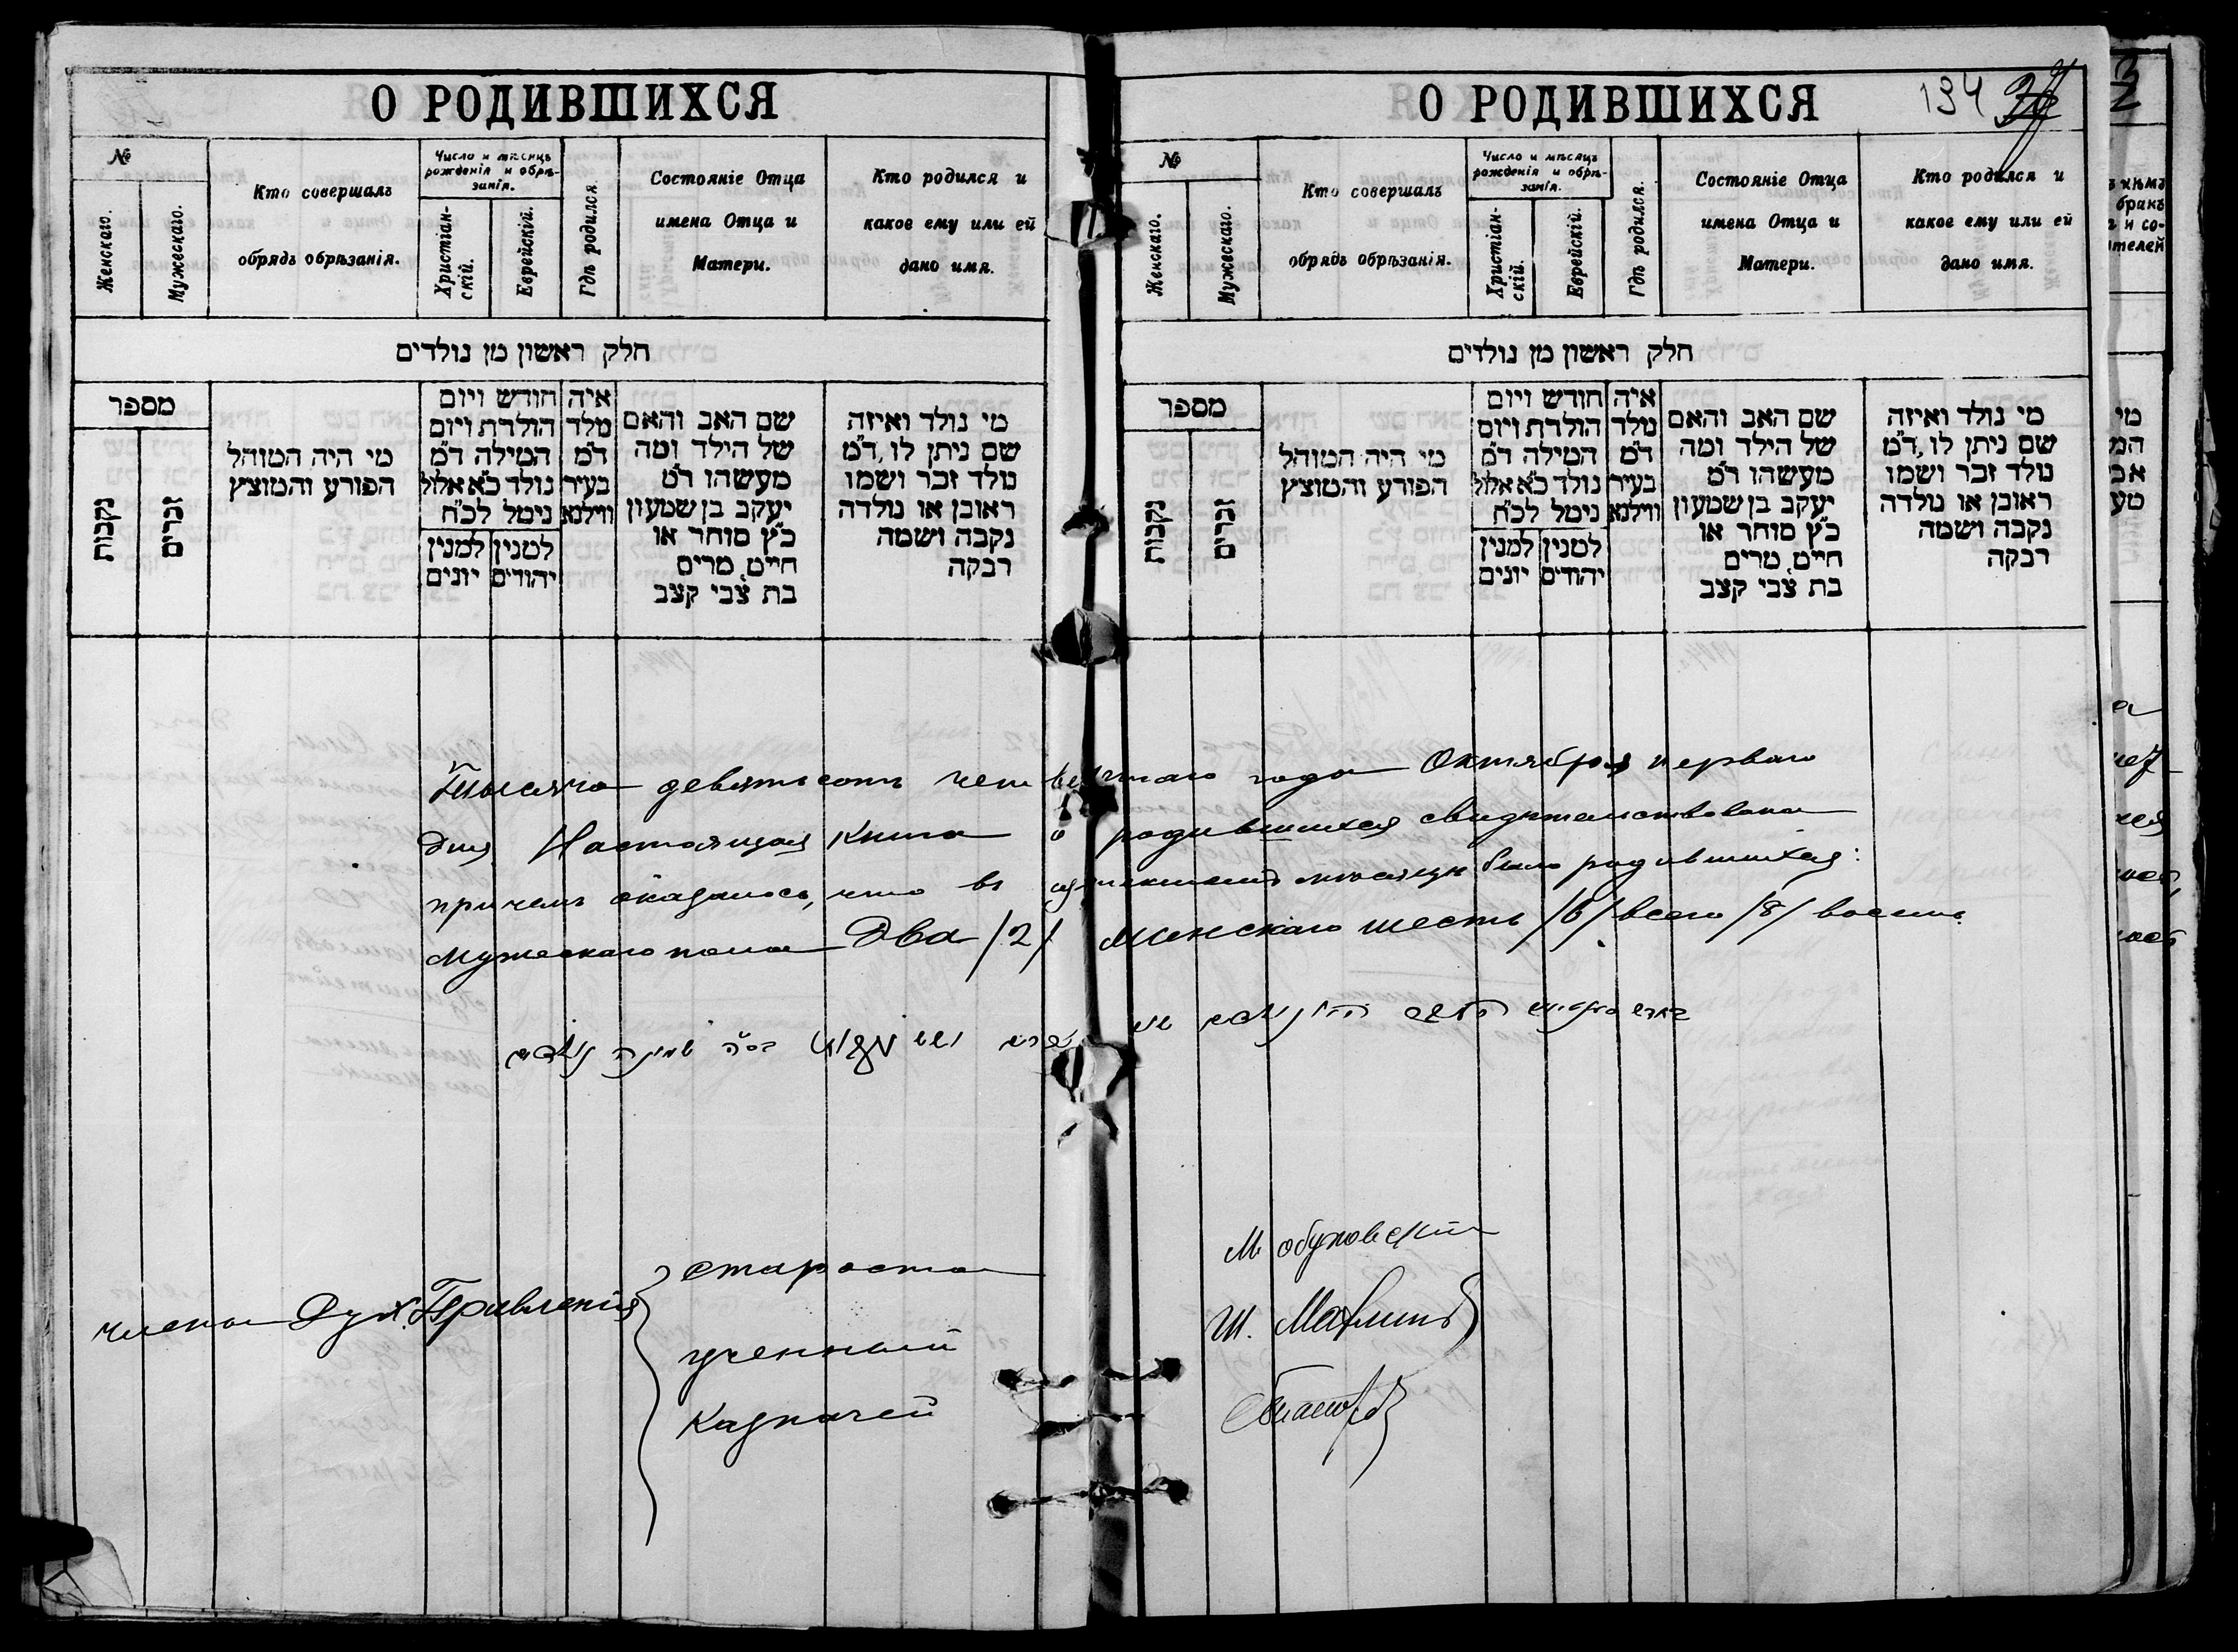 О РОДИВШИХСЯ
№
Женскаго.
Мужескаго.
Кто совершалъ
обрядъ обрѣзанія.
Число и мѣсяцъ
рожденія и обрѣ-
занія.
Христіан-
скій.
Еврейскій.
Гдѣ родился.
Состояніе Отца
имена Отца и
Матери.
Кто родился и
какое ему или ей
дано имя.
חלק ראשון מן נולדים
מספר
נקבות
זכרים
מי היה המוהל
הפורע והמוצץ
חודש ויום
הולדת ויום
המילה ד״מ
נולד כ״א אלול
נימל לכ״ח
למנין
יונים
למנין
יהודים
איה
מלד
ד״מ
בעיר
ווילנא
שם האב והאם
של הילד ומה
מעשהו ד״מ
יעקב בן שמעון
כ״ץ סוחר או
חייט, מרים
בת צבי קצב
מי נולד ואיזה
שם ניתן לו, ד״מ
נולד זכר ושמו
ראובן או נולדה
נקבה ושמה
רבקה
О РОДИВШИХСЯ
194
№
Женскаго.
Мужескаго.
Кто совершалъ
обрядъ обрѣзанія.
Число и мѣсяцъ
рожденія и обрѣ-
занія.
Христіан-
скій.
Еврейскій.
Гдѣ родился.
Состояніе Отца
имена Отца и
Матери.
Кто родился и
какое ему или ей
дано имя.
חלק ראשון מן נולדים
מספר
נקבות
זכרים
מי היה המוהל
הפורע והמוצץ
חודש ויום
הולדת ויום
המילה ד״מ
נולד כ״א אלול
נימל לכ״ח
למנין
יונים
למנין
יהודים
איה
מולד
ד״מ
בעיר
ווילנא
שם האב והאם
של הילד ומה
מעשהו ד״מ
יעקב בן שמעון
כ״ץ סוחר או
חייט, מרים
בת צבי קצב
מי נולד ואיזה
שם ניתן לו, ד״מ
נולד זכר ושמו
ראובן או נולדה
נקבה ושמה
רבקה
Тысяча девятьсотъ четвертаго года Октября перваго
дня Настоящая книга о родившихся свидѣтельствована
причемъ оказалось, что въ мѣсяцѣ было родившихся:
мужескаго пола Два /2/ женскаго шесть /6/ всего /8/ восемь.
члены Дух. Правленія
староста М Обуховскій
ученный Ш.
казначей